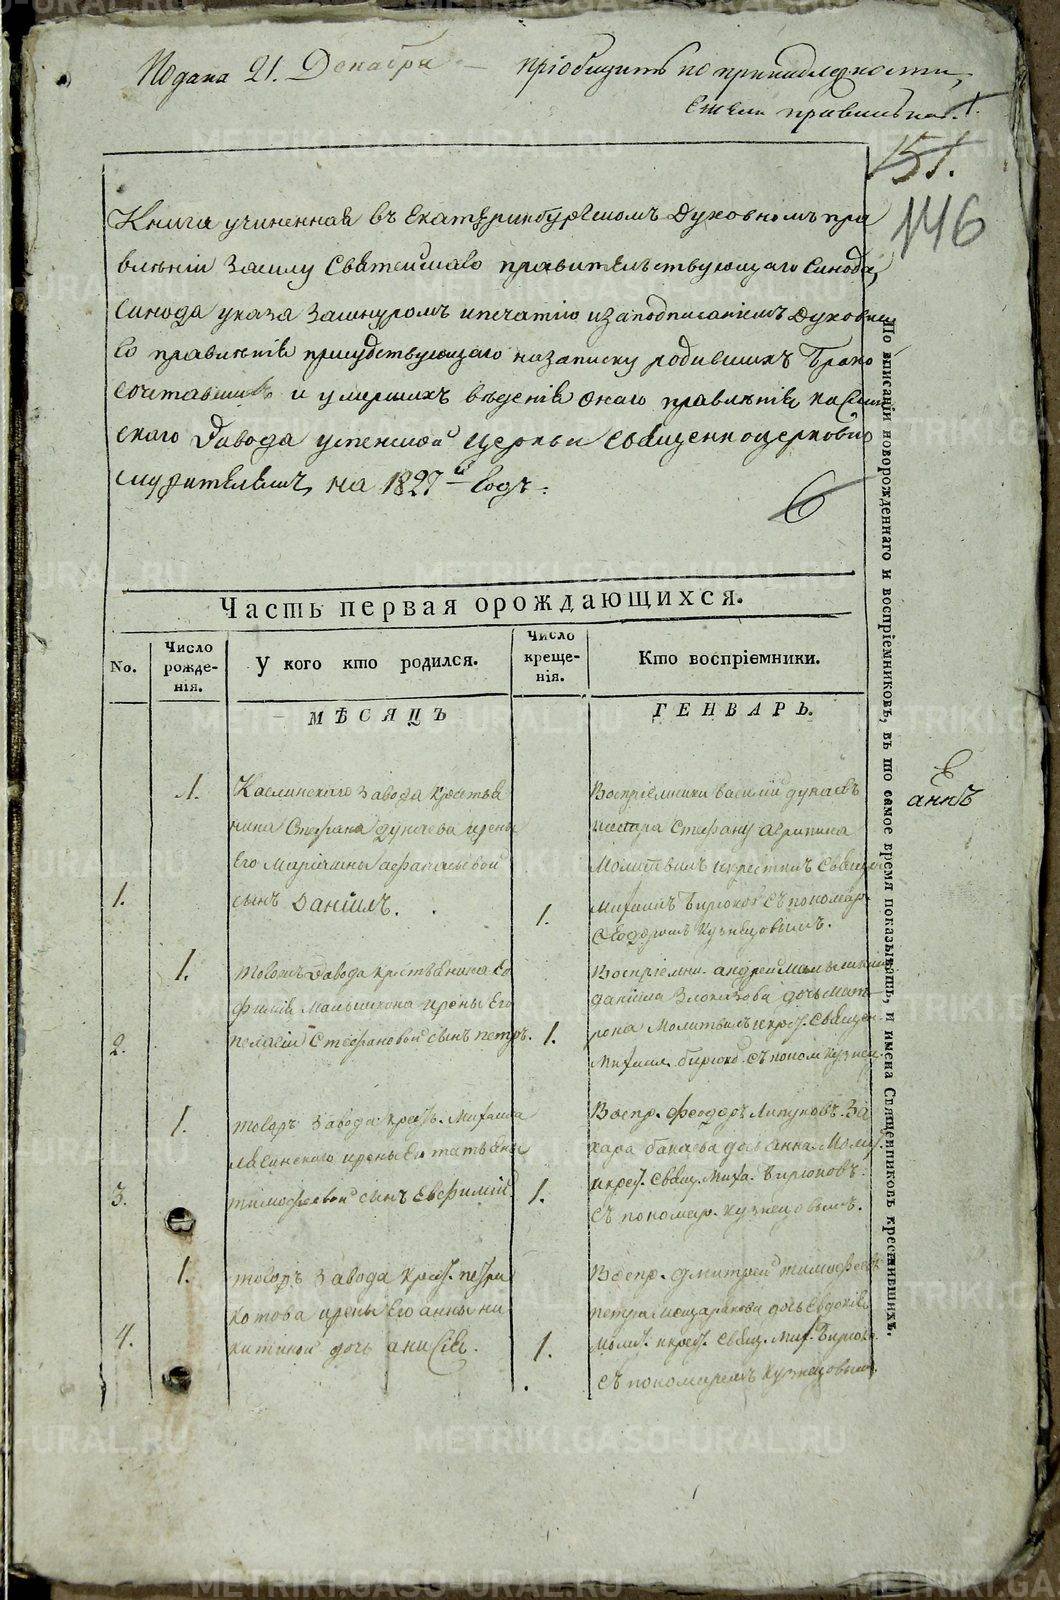 Подана 21. Декабря — пріобщить по принадлежности,
ежели правильно.
151.
146
Книга учиненная въ Екатеринбургскомъ Духовномъ пра
вленіи засилу Святейшаго правительствующаго Синода,
Синода указа зашнуромъ ипечатію изаподписаніемъ Духовна
го правленія присудствующаго назаписку родившихъ брако
сочтавшихъ и умершихъ вѣденія онаго правленія Каслин
скаго Завода успенской церкви священноцерковно
служителямъ, на 1827й Годъ.
6
Часть первая орождающихся.
No.
Число рожденія.
У кого кто родился.
Число крещенія.
Кто воспріемники.
МѢСЯЦЪ
ГЕНВАРЬ.
1.
1.
Каслинскаго завода крестья
нина Стефана Дунаева жены
Его Маріамны афанасьевой
сынъ Даніилъ.
1.
Воспріемники василий дунаевъ
Стефану агрипина
Молитвилъ икрестилъ Священ
Михаилъ Бирюковъ съ пономар.
Феодоромъ Кузнецовымъ.
2.
1.
тогожъ Завода крестьянина Ео
фимія Малышкина жены Его
пелагіи Стефановой сынъ петръ.
1.
Воспріемни. андрей
даніила Злоказова дочь мат
рона Молитвилъ икрес. Священ.
Михаил. бирюко. съ поном. Кузнец.
3.
1.
тогожъ завода крест. Михаила
жены Его татьяны
тимофеевой сынъ Евфимій
1.
Воспр. феодоръ Липуновъ. За
хара дочь анна. Моли.
икрес. Свящ. Миха. Бирюковъ.
съ пономар. Кузнецовымъ.
4.
1.
тогожъ завода крест. петра
котова жены Его анны ни
китиной дочь анисія.
1.
Воспр. дмитрей тимофеевъ
петра дочь Евдокія
молит. икрес. свящ. мих. Бирюко.
съ пономаремъ Кузнецовымъ.
По вписаніи новорожденнаго и воспріемниковъ, въ то самое время показывать, и имена Священниковъ крестившихъ.